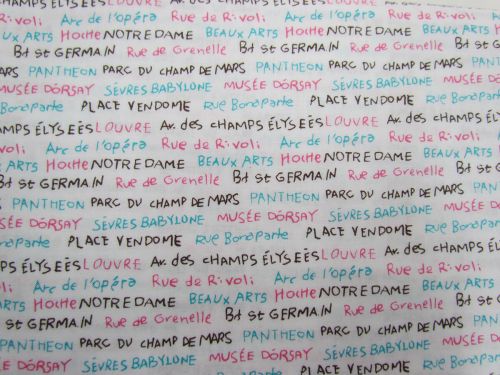 AMPS ÉLYSEES LOUVRE Av. des CHAMPS ÉLYSEES LOUVRE
Rivoli Arc de l'opéra Rue de Rivoli Arc de l'opéra Rue de
BEAUX ARTS Hoche NOTRE DAME BEAUX ARTS Hoche NOTRE DAME
Bd St GERMAIN Rue de Grenelle Bd St GERMAIN Rue de Grenelle
MARS PANTHEON PARC DU CHAMP DE MARS PANTHEON PARC DU CHAMP DE MARS
MUSÉE DÓRSAY SÉVRES BABYLONE MUSÉE DÓRSAY SÉVRES BABYLONE
Bonaparte PLACE VENDOME Rue Bonaparte PLACE VENDOME
AMPS ÉLYSEES LOUVRE Av. des CHAMPS ÉLYSEES LOUVRE Av. des CHAM
voli Arc de l'opéra Rue de Rivoli Arc de l'opéra Rue de
X ARTS Hoche NOTRE DAME BEAUX ARTS Hoche NOTRE DAME BEAUX
Bd St GERMAIN Rue de Grenelle Bd St GERMAIN Rue de Grenelle
MARS PANTHEON PARC DU CHAMP DE MARS PANTHEON PARC DU CHAMP DE MARS
SÉE DÓRSAY SÉVRES BABYLONE MUSÉE DÓRSAY SÉVRES BABYLONE MUSÉE
Bonaparte PLACE VENDOME Rue Bonaparte PLACE VENDOME Rue
PS ÉLYSEES LOUVRE Av. des CHAMPS ÉLYSEES LOUVRE Av. des CHAM
voli Arc de l'opéra Rue de Rivoli Arc de l'opéra Rue de
X ARTS Hoche NOTRE DAME BEAUX ARTS Hoche NOTRE DAME BEAUX
d St GERMAIN Rue de Grenelle Bd St GERMAIN Rue de Grenelle
MARS PANTHEON PARC DU CHAMP DE MARS PANTHEON PARC DU CHAMP DE MARS
MUSÉE DÓRSAY SÉVRES BABYLONE MUSÉE DÓRSAY SÉVRES BABYLONE
Bonaparte PLACE VENDOME Rue Bonaparte PLACE VENDOME Rue